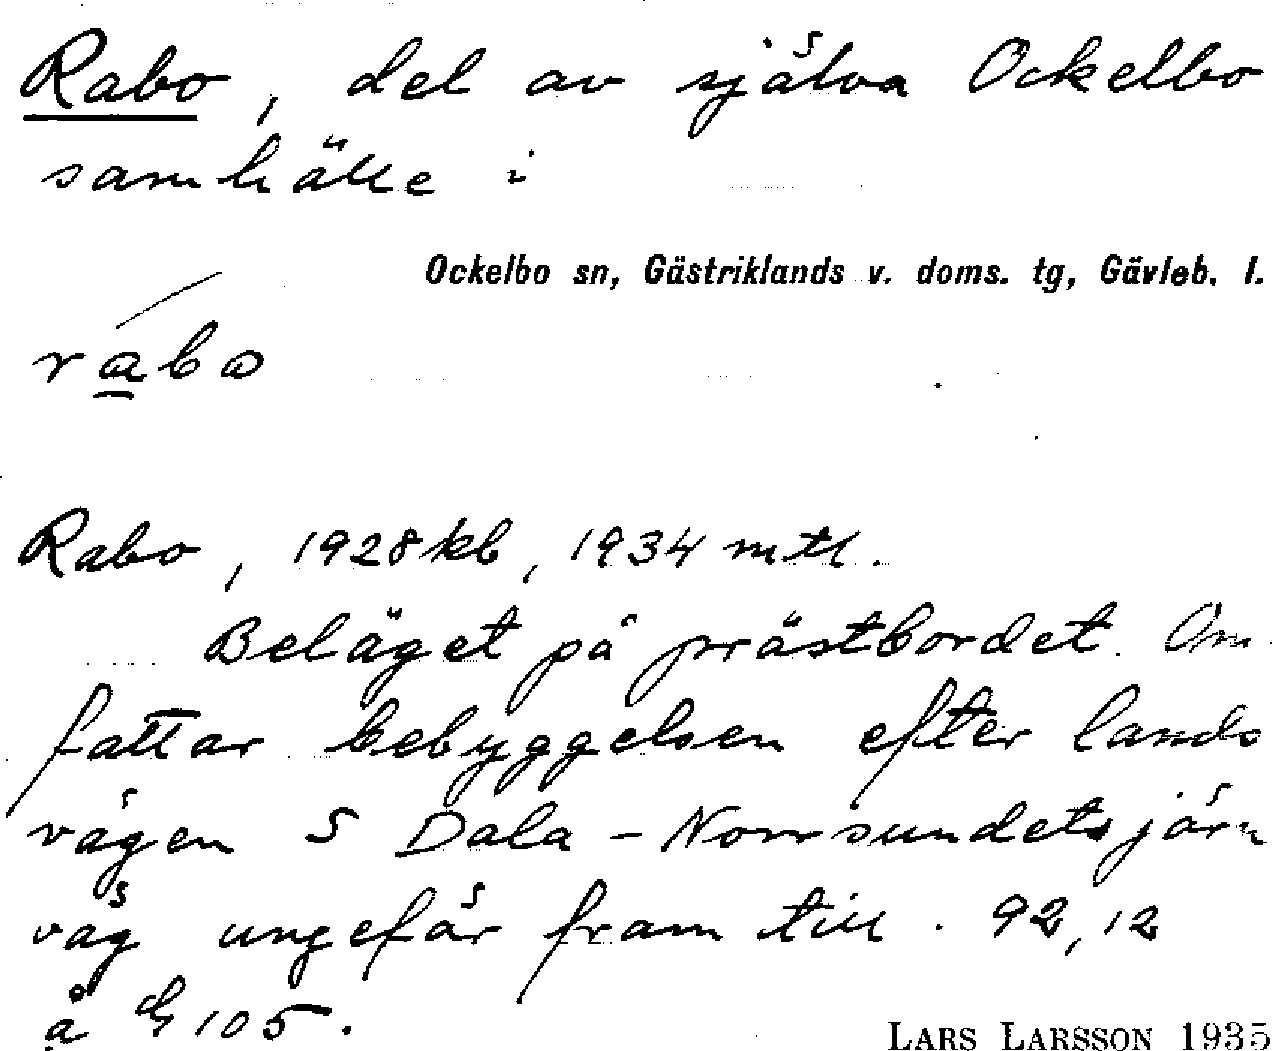 Rabo, del av själva Ockelbo
samhälle i
Ockelbo sn, Gästriklands v. doms. tg, Gävleb. l.
rabo
Rabo, 1928 kb, 1934 mtl.
Beläget på prästbordet. Om-
fattar bebyggelsen efter lands
vägen S Dala – Norrsundets järn
väg ungefär fram till . 92,12
å G 105.
LARS LARSSON 1935